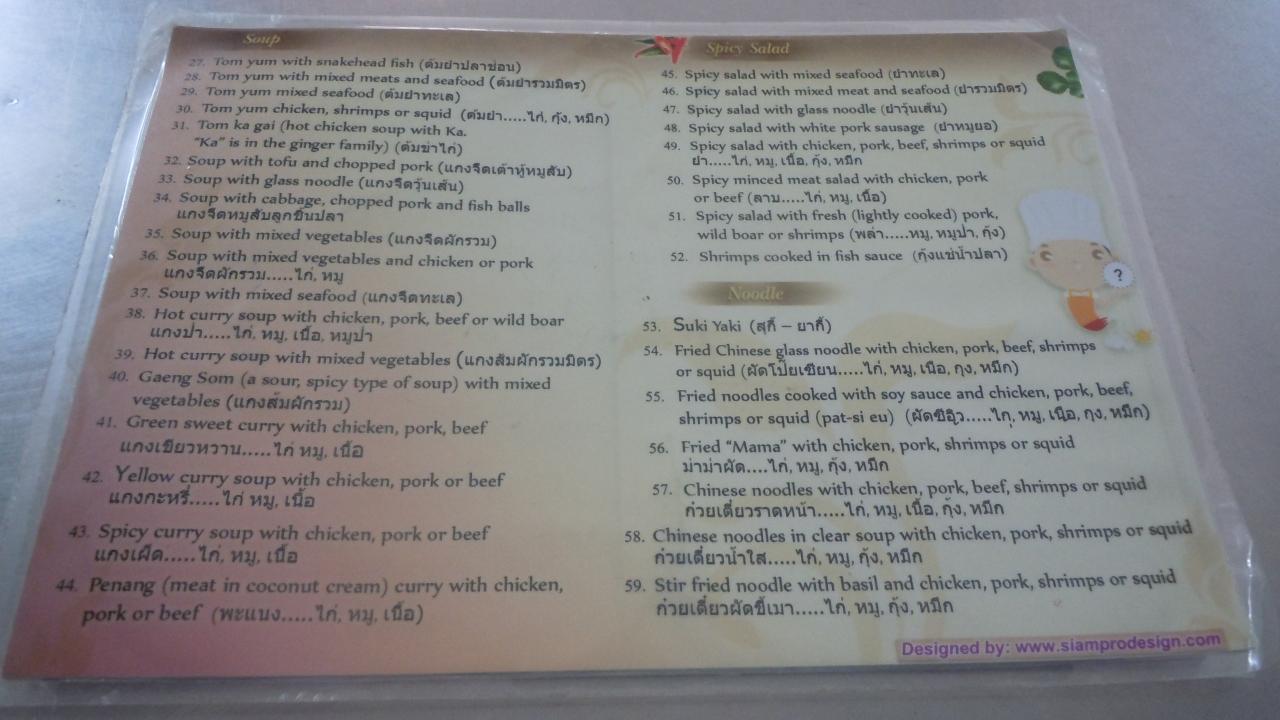 Soup
27. Tom yum with snakehead fish (ต้มยำปลาช่อน)
28. Tom yum with mixed meats and seafood (ต้มยำรวมมิตร)
29. Tom yum mixed seafood (ต้มยำทะเล)
30. Tom yum chicken, shrimps or squid (ต้มยำ.....ไก่, กุ้ง, หมึก)
31. Tom ka gai (hot chicken soup with Ka.
"Ka" is in the ginger family) (ต้มข่าไก่)
32. Soup with tofu and chopped pork (แกงจืดเต้าหู้หมูสับ)
33. Soup with glass noodle (แกงจืดวุ้นเส้น)
34. Soup with cabbage, chopped pork and fish balls
แกงจืดหมูสับลูกชิ้นปลา
35. Soup with mixed vegetables (แกงจืดผักรวม)
36. Soup with mixed vegetables and chicken or pork
แกงจืดผักรวม.....ไก่, หมู
37. Soup with mixed seafood (แกงจืดทะเล)
38. Hot curry soup with chicken, pork, beef or wild boar
แกงป่า.....ไก่, หมู, เนื้อ, หมูป่า
39. Hot curry soup with mixed vegetables (แกงส้มผักรวมมิตร)
40. Gaeng Som (a sour, spicy type of soup) with mixed
vegetables (แกงส้มผักรวม)
41. Green sweet curry with chicken, pork, beef
แกงเขียวหวาน.....ไก่ หมู, เนื้อ
42. Yellow curry soup with chicken, pork or beef
แกงกะหรี่.....ไก่ หมู, เนื้อ
43. Spicy curry soup with chicken, pork or beef
แกงเผ็ด.....ไก่, หมู, เนื้อ
44. Penang (meat in coconut cream) curry with chicken,
pork or beef (พะแนง.....ไก่, หมู, เนื้อ)
Spicy Salad
45. Spicy salad with mixed seafood (ยำทะเล)
46. Spicy salad with mixed meat and seafood (ยำรวมมิตร)
47. Spicy salad with glass noodle (ยำวุ้นเส้น)
48. Spicy salad with white pork sausage (ยำหมูยอ)
49. Spicy salad with chicken, pork, beef, shrimps or squid
ยำ.....ไก่, หมู, เนื้อ, กุ้ง, หมึก
50. Spicy minced meat salad with chicken, pork
or beef (ลาบ.....ไก่, หมู, เนื้อ)
51. Spicy salad with fresh (lightly cooked) pork,
wild boar or shrimps (พล่า.....หมู, หมูป่า, กุ้ง)
52. Shrimps cooked in fish sauce (กุ้งแช่น้ำปลา)
?
Noodle
53. Suki Yaki (สุกี้ – ยากี้)
54. Fried Chinese glass noodle with chicken, pork, beef, shrimps
or squid (ผัดโป๊ยเซียน.....ไก่, หมู, เนื้อ, กุ้ง, หมึก)
55. Fried noodles cooked with soy sauce and chicken, pork, beef,
shrimps or squid (pat-si eu) (ผัดซีอิ๊ว.....ไก่, หมู, เนื้อ, กุ้ง, หมึก)
56. Fried "Mama" with chicken, pork, shrimps or squid
ม่าม่าผัด....ไก่, หมู, กุ้ง, หมึก
57. Chinese noodles with chicken, pork, beef, shrimps or squid
ก๋วยเตี๋ยวราดหน้า.....ไก่, หมู, เนื้อ, กุ้ง, หมึก
58. Chinese noodles in clear soup with chicken, pork, shrimps or squid
ก๋วยเตี๋ยวน้ำใส.....ไก่, หมู, กุ้ง, หมึก
59. Stir fried noodle with basil and chicken, pork, shrimps or squid
ก๋วยเตี๋ยวผัดขี้เมา.....ไก่, หมู, กุ้ง, หมึก
Designed by: www.siamprodesign.com